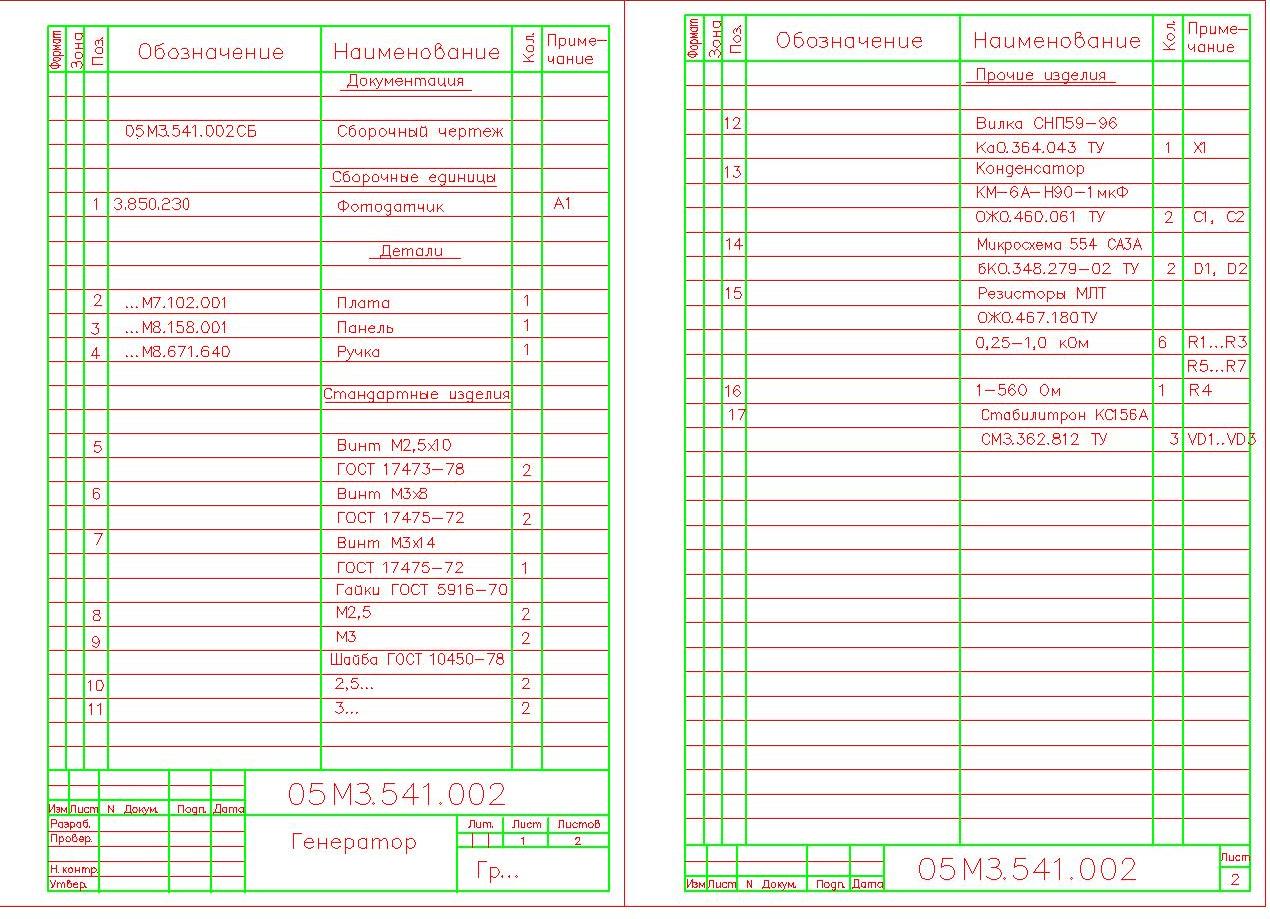 Формат Зона Поз. Обозначение Наименование Кол. Приме-
чание
Документация
05М3.541.002СБ Сборочный чертеж
Сборочные единицы
1 3.850.230 Фотодатчик А1
Детали
2 ...М7.102.001 Плата 1
3 ...М8.158.001 Панель 1
4 ...М8.671.640 Ручка 1
Стандартные изделия
5 Винт М2,5х10
ГОСТ 17473-78 2
6 Винт М3х8
ГОСТ 17475-72 2
7 Винт М3х14
ГОСТ 17475-72 1
Гайки ГОСТ 5916-70
8 М2,5 2
9 М3 2
Шайба ГОСТ 10450-78
10 2,5... 2
11 3... 2
05М3.541.002
Изм Лист N Докум. Подп. Дата
Разраб.
Провер.
Н. контр.
Утвер.
Генератор
Лит. Лист Листов
1 2
Гр...
Формат Зона Поз. Обозначение Наименование Кол. Приме-
чание
Прочие изделия
12 Вилка СНП59-96
Ка0.364.043 ТУ 1 Х1
13 Конденсатор
КМ-6А-Н90-1мкФ
ОЖ0.460.061 ТУ 2 С1, С2
14 Микросхема 554 СА3А
бК0.348.279-02 ТУ 2 D1, D2
15 Резисторы МЛТ
ОЖ0.467.180ТУ
0,25-1,0 кОм 6 R1...R3
R5...R7
16 1-560 Ом 1 R4
17 Стабилитрон КС156А
СМ3.362.812 ТУ 3 VD1..VD3
Изм Лист N Докум. Подп. Дата
05М3.541.002
Лист
2